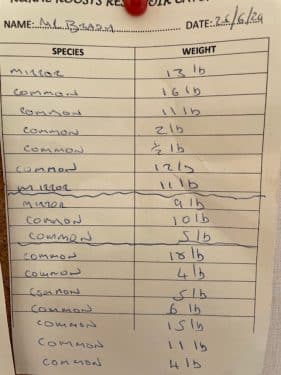 NAME: Mc DATE: 26/6/24
SPECIES WEIGHT
MIRROR 13 lb
COMMON 16 lb
COMMON 11 lb
COMMON 2 lb
COMMON ½ lb
COMMON 12 lb
MIRROR 11 lb
MIRROR 9 lb
COMMON 10 lb
COMMON 5 lb
COMMON 18 lb
COMMON 4 lb
COMMON 5 lb
COMMON 6 lb
COMMON 15 lb
COMMON 11 lb
COMMON 4 lb